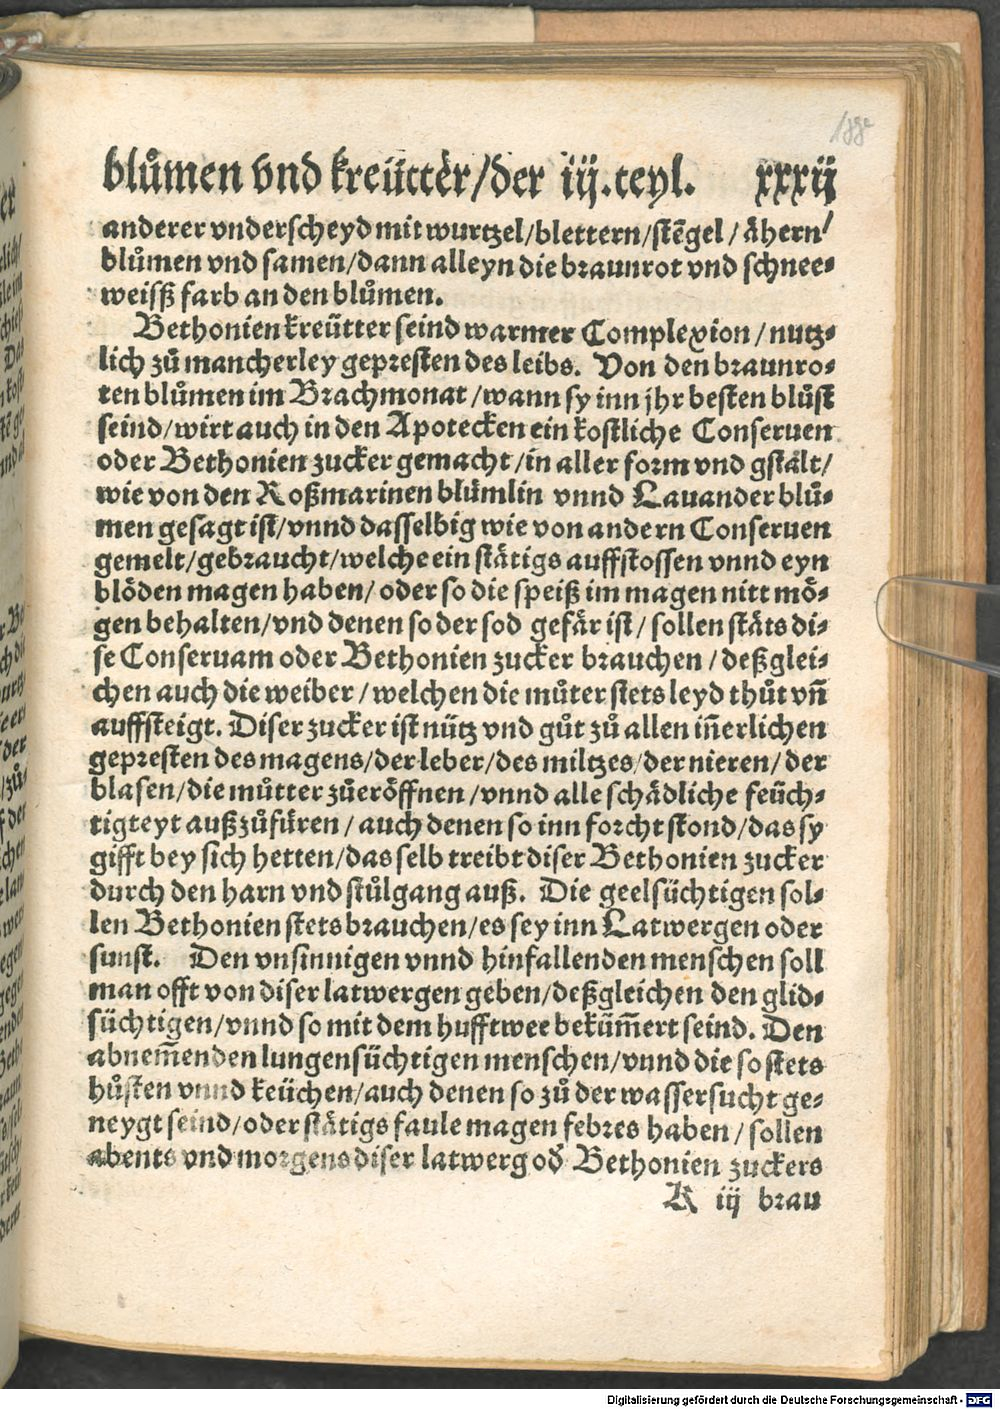 blůmen vnd kreütter/der iij.teyl. xxxij
anderer vnderscheyd mit wurtzel/blettern/stẽgel/ ähern/
blůmen vnd samen/dann alleyn die braunrot vnd schnee-
weisß farb an den blůmen.
Bethonien kreütter seind warmer Complexion/nutz-
lich zů mancherley gepresten des leibs. Von den braunro-
ten blůmen im Brachmonat/wann sy inn jhr besten blůst
seind/wirt auch in den Apotecken ein kostliche Conseruen
oder Bethonien zucker gemacht/in aller form vnd gstalt/
wie von den Roßmarinen blümlin vnnd Lauander blů-
men gesagt ist/vnnd dasselbig wie von andern Conseruen
gemelt/gebraucht/welche ein stätigs auffstossen vnnd eyn
blöden magen haben/oder so die speiß im magen nitt mö-
gen behalten/vnd denen so der sod gefär ist/sollen stäts di-
se Conseruam oder Bethonien zucker brauchen/deßglei-
chen auch die weiber/welchen die můter stets leyd thůt vñ
auffsteigt. Diser zucker ist nütz vnd gůt zů allen iñerlichen
gepresten des magens/der leber/des miltzes/der nieren/der
blasen/die můtter zů eröffnen/vnnd alle schädliche feüch-
tigteyt außzůfüren/auch denen so inn forcht stond/das sy
gifft bey sich hetten/das selb treibt diser Bethonien zucker
durch den harn vnd stůlgang auß. Die geelsüchtigen sol-
len Bethonien stets brauchen/es sey inn Latwergen oder
sunst. Den vnsinnigen vnnd hinfallenden menschen soll
man offt von diser latwergen geben/deßgleichen den glid-
süchtigen/vnnd so mit dem hufftwee bekü̃mert seind. Den
abnem̃enden lungensüchtigen menschen/vnnd die so stets
hůsten vnnd keüchen/auch denen so zů der wassersucht ge-
neygt seind/oder stätigs faule magen febres haben/sollen
abents vnd morgens diser latwerg od̃ Bethonien zuckers
K iij brau
Digitalisierung gefördert durch die Deutsche Forschungsgemeinschaft - DFG